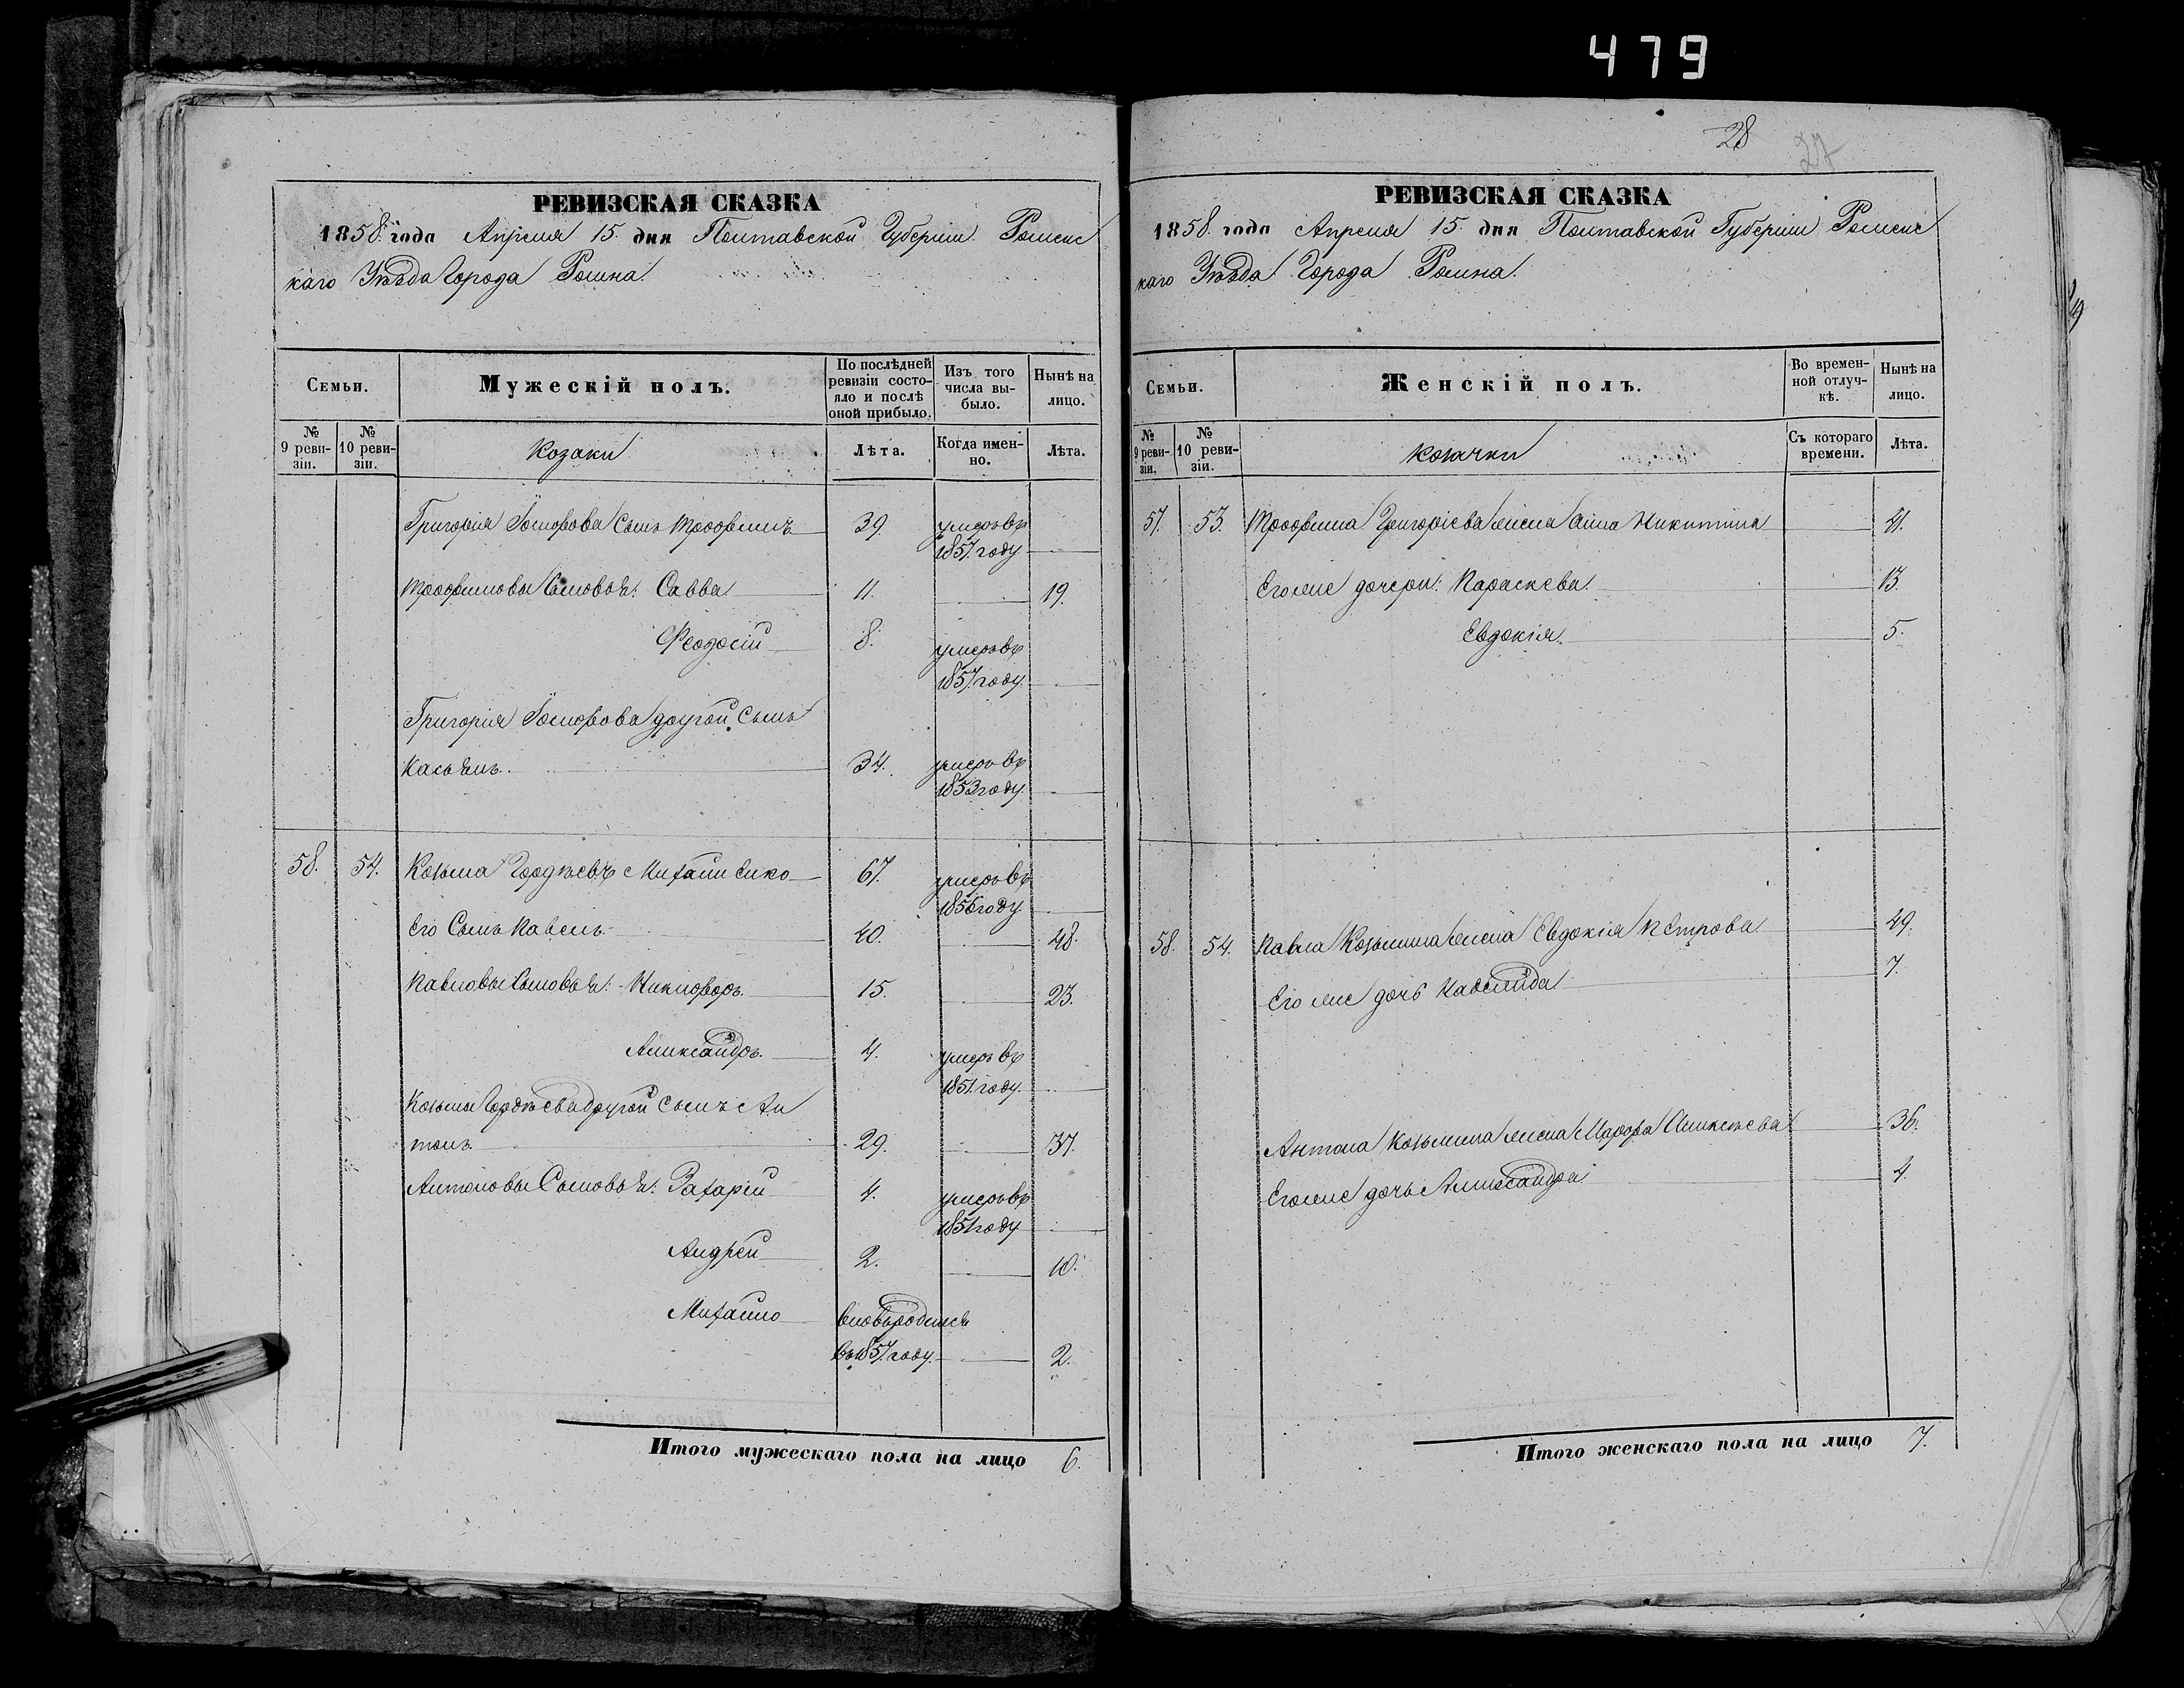 479
28
27
РЕВИЗСКАЯ СКАЗКА
1858. года Апреля 15. дня Полтавской Губернiи Роменс
каго Уѣзда Города Ромна.
Семьи.
Мужескiй полъ.
По послѣдней ревизiи состояло и послѣ оной прибыло.
Изъ того числа выбыло.
Нынѣ на лицо.
№ 9 ревизiи.
№ 10 ревизiи.
Козаки
Лѣта.
Когда именно.
Лѣта.
Григорiя Сынъ Трофимъ 39. умеръ въ 1857. году
Трофимовы Сыновья: Савва 11. 19.
Феодосiй 8. умеръ въ 1857. году
Григорiя другой Сынъ
Касьянъ. 34. умеръ въ 1853 году.
58. 54. Козьма Гордѣевъ 67. умеръ въ 1856 году.
Его Сынъ Павелъ 40. 48.
Павловы Сыновья: Никифоръ. 15. 23.
Александръ. 4. умеръ въ 1851. году.
Козьмы Гордѣева другой Сынъ Ан
тонъ 29. 37.
Антоновы Сыновья: Захарiй 4. умеръ въ 1851 году
Андрей 2. 10.
Михайло вновьродился въ 1857. году. 2.
Итого мужескаго пола на лицо 6.
РЕВИЗСКАЯ СКАЗКА
1858. года Апреля 15. дня Полтавской Губернiи Роменс
каго Уѣзда Города Ромна.
Семьи.
Женскiй полъ.
Во временной отлучкѣ.
Нынѣ на лицо.
№ 9 ревизiи.
№ 10 ревизiи.
козачки
Съ котораго времени.
Лѣта.
57. 53. Трофима Григорiева жена Анна Никитина 41.
Его же дочери: Параскева. 13.
Евдокiя. 5.
58. 54. Павла Козьмина жена Евдокiя Петрова 49.
Его же дочь 7.
Антона Козьмина жена Марфа Алексѣева 36.
Его же дочь Александра 4.
Итого женскаго пола на лицо 7.